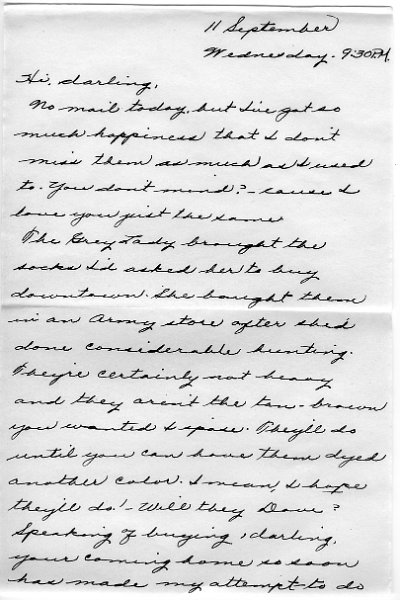 11 September
Wednesday. 9:30 P.M.
Hi, darling,
No mail today, but I've got so
much happiness that I don't
miss them as much as I used
to. You don't mind? - cause I
love you just the same
The Grey Lady brought the
socks I'd asked her to buy
downtown. She bought them
in an Army store after she'd
done considerable hunting.
They're certainly not heavy
and they aren't the tan-brown
you wanted I spose. They'll do
until you can have them dyed
another color. I mean, I hope
they'll do! - Will they Dave?
Speaking of buying, darling,
your coming home so soon
has made my attempt to do